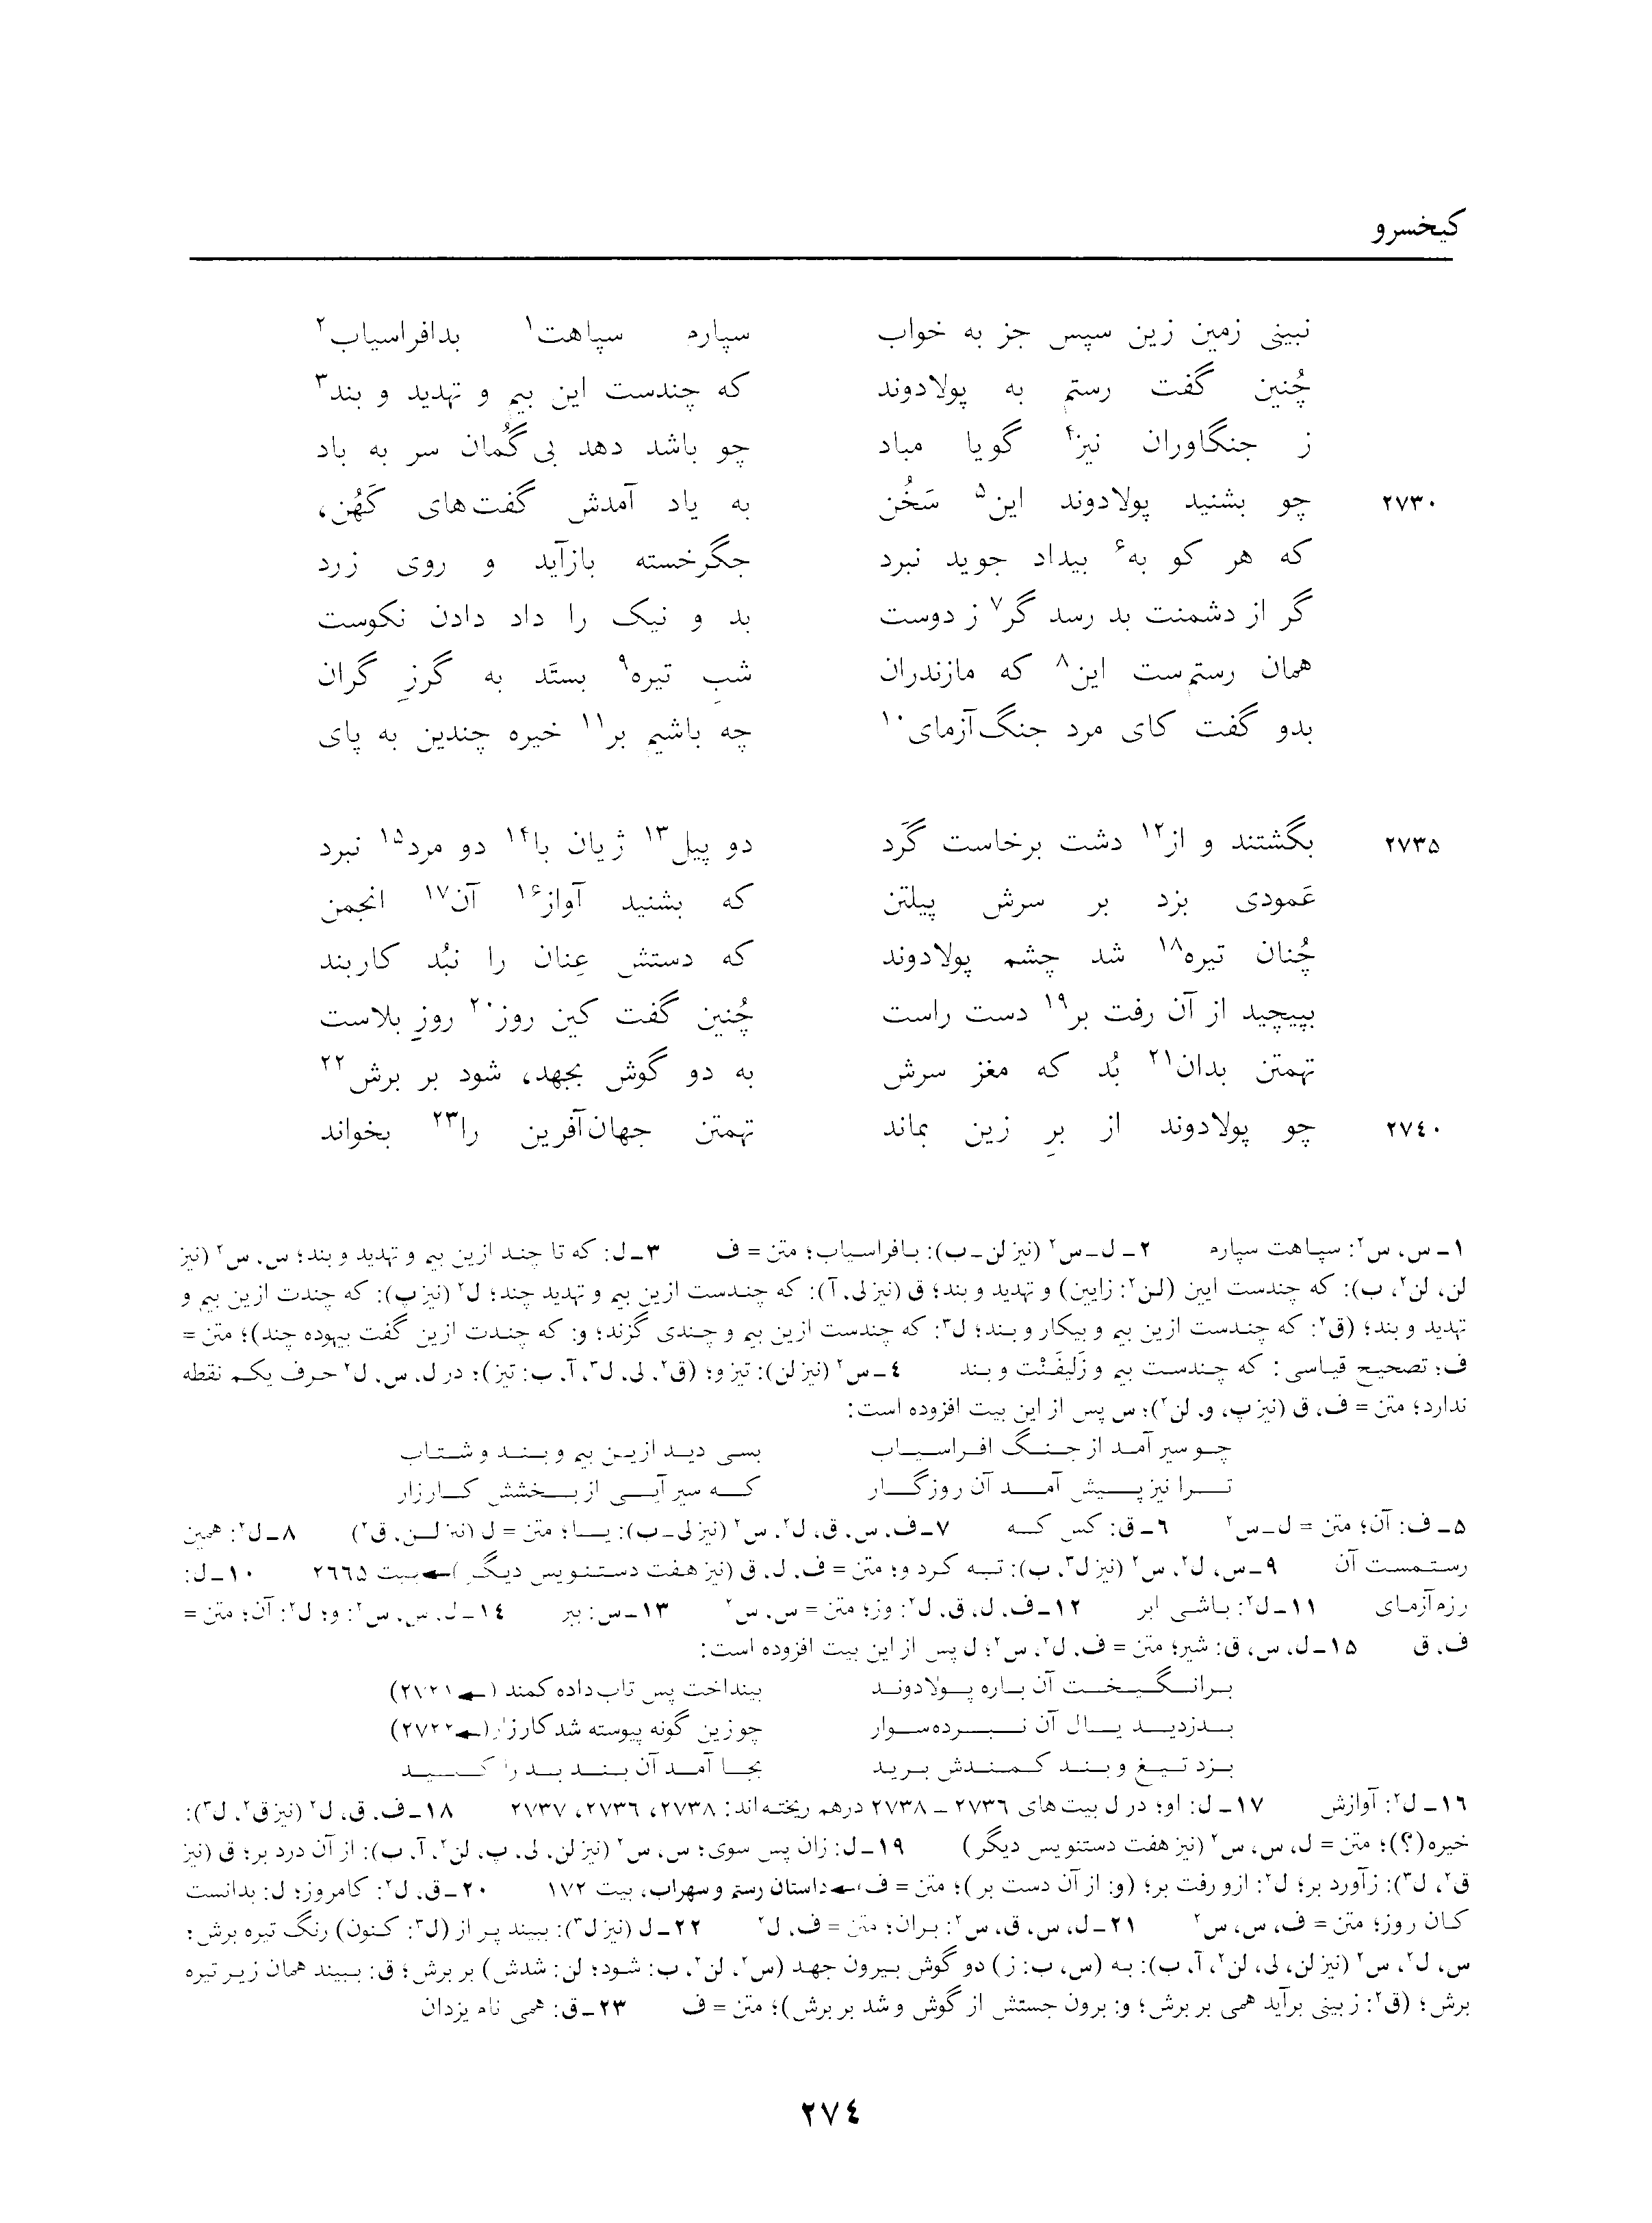 کیخسرو
نبینی زمین زین سپس جز به خواب سپارم سپاهت۱ بدافراسیاب۲
چُنین گفت رستم به پولادوند که چندست این بیم و تهدید و بند۳
ز جنگاوران نیز۴ گویا مباد چو باشد دهد بی‌گُمان سر به باد
۲۷۳۰ چو بشنید پولادوند این۵ سَخُن به یاد آمدش گفت‌های کَهُن،
که هر کو به۶ بیداد جوید نبرد جگرخسته بازآید و روی زرد
گر از دشمنت بد رسد گر۷ ز دوست بد و نیک را داد دادن نکوست
همان رستم‌ست این۸ که مازندران شبِ تیره۹ بستَد به گرزِ گران
بدو گفت کای مرد جنگ‌آزمای۱۰ چه باشیم بر۱۱ خیره چندین به پای
۲۷۳۵ بگشتند و از۱۲ دشت برخاست گَرد دو پیل۱۳ ژیان با۱۴ دو مرد۱۵ نبرد
عَمودی بزد بر سرش پیلتن که بشنید آواز۱۶ آن۱۷ انجمن
چُنان تیره۱۸ شد چشم پولادوند که دستش عِنان را نبُد کاربند
بپیچید از آن رفت بر۱۹ دست راست چُنین گفت کین روز۲۰ روزِ بلاست
تهمتن بدان۲۱ بُد که مغز سرش به دو گوش بجهد، شود بر برش۲۲
۲۷۴۰ چو پولادوند از برِ زین بماند تهمتن جهان‌آفرین را۲۳ بخواند
۱ـ س، س۲: سپاهت سپارم ۲ـ ل‌ـ س۲ (نیز لن ـ ب): بافراسیاب؛ متن = ف ۳ـ ل: که تا چند ازین بیم و تهدید و بند؛ س، س۲ (نیز
لن، لن۲، ب): که چندست ایین (لن۲: زایین) و تهدید و بند؛ ق (نیز لی، آ): که چندست ازین بیم و تهدید چند؛ ل۲ (نیز پ): که چندت ازین بیم و
تهدید و بند؛ (ق۲: که چندست ازین بیم و بیکار و بند؛ ل۳: که چندست ازین بیم و چندی گزند؛ و: که چندت ازین گفت بیهوده چند)؛ متن =
ف؛ تصحیح قیاسی: که چندست بیم و زَلیفَنْت و بند ۴ـ س۲ (نیز لن): تیز و؛ (ق۲، لی، ل۳، آ، ب: تیز)؛ در ل، س، ل۲ حرف یکم نقطه
ندارد؛ متن = ف، ق (نیز پ، و، لن۲)؛ س پس از این بیت افزوده است:
چو سیر آمد از جنگ افراسیاب بسی دید ازین بیم و بند و شتاب
ترا نیز پیش آمد آن روزگار که سیر آیی از بخشش کارزار
۵ـ ف: آن؛ متن = ل‌ـ س۲ ۶ـ ق: کس که ۷ـ ف، س، ق، ل۲، س۲ (نیز لی‌ـ ب): یا؛ متن = ل (نیز لن، ق۲) ۸ـ ل۲: همین
رستمست آن ۹ـ س، ل۲، س۲ (نیز ل۳، ب): تبه کرد و؛ متن = ف، ل، ق (نیز هفت دستنویس دیگر)← بیت ۲۶۶۵ ۱۰ـ ل:
رزم‌آزمای ۱۱ـ ل۲: باشی ابر ۱۲ـ ف، ل، ق، ل۲: وز؛ متن = س، س۲ ۱۳ـ س: ببر ۱۴ـ ل، س، س۲: و؛ ل۲: آن؛ متن =
ف، ق ۱۵ـ ل، س، ق: شیر؛ متن = ف، ل۲، س۲؛ ل پس از این بیت افزوده است:
برانگیخت آن باره پولادوند بینداخت پس تاب‌داده کمند (← ۲۷۲۱)
بدزدید یال آن نبرده‌سوار چو زین گونه پیوسته شد کارزار (← ۲۷۲۲)
بزد تیغ و بند کمندش برید بجا آمد آن بند بد را کلید
۱۶ـ ل۲: آوازش ۱۷ـ ل: او؛ در ل بیت‌های ۲۷۳۶ ـ ۲۷۳۸ درهم ریخته‌اند: ۲۷۳۸، ۲۷۳۶، ۲۷۳۷ ۱۸ـ ف، ق، ل۲ (نیز ق۲، ل۳):
خیره(؟)؛ متن = ل، س، س۲ (نیز هفت دستنویس دیگر) ۱۹ـ ل: زان پس سوی؛ س، س۲ (نیز لن، لی، پ، لن۲، آ، ب): از آن درد بر؛ ق (نیز
ق۲، ل۳): زآورد بر؛ ل۲: ازو رفت بر؛ (و: از آن دست بر)؛ متن = ف؛← داستان رستم و سهراب، بیت ۱۷۲ ۲۰ـ ق، ل۲: کامروز؛ ل: بدانست
کان روز؛ متن = ف، س، س۲ ۲۱ـ ل، س، ق، س۲: بران؛ متن = ف، ل۲ ۲۲ـ ل (نیز ل۳): ببیند پر از (ل۳: کنون) رنگ تیره برش؛
س، ل۲، س۲ (نیز لن، لی، لن۲، آ، ب): به (س، ب: ز) دو گوش بیرون جهد (س۲، لن۲، ب: شود؛ لن: شدش) بر برش؛ ق: ببیند همان زیر تیره
برش؛ (ق۲: ز بینی برآید همی بر برش؛ و: برون جستش از گوش و شد بر برش)؛ متن = ف ۲۳ـ ق: همی نام یزدان
۲۷۴